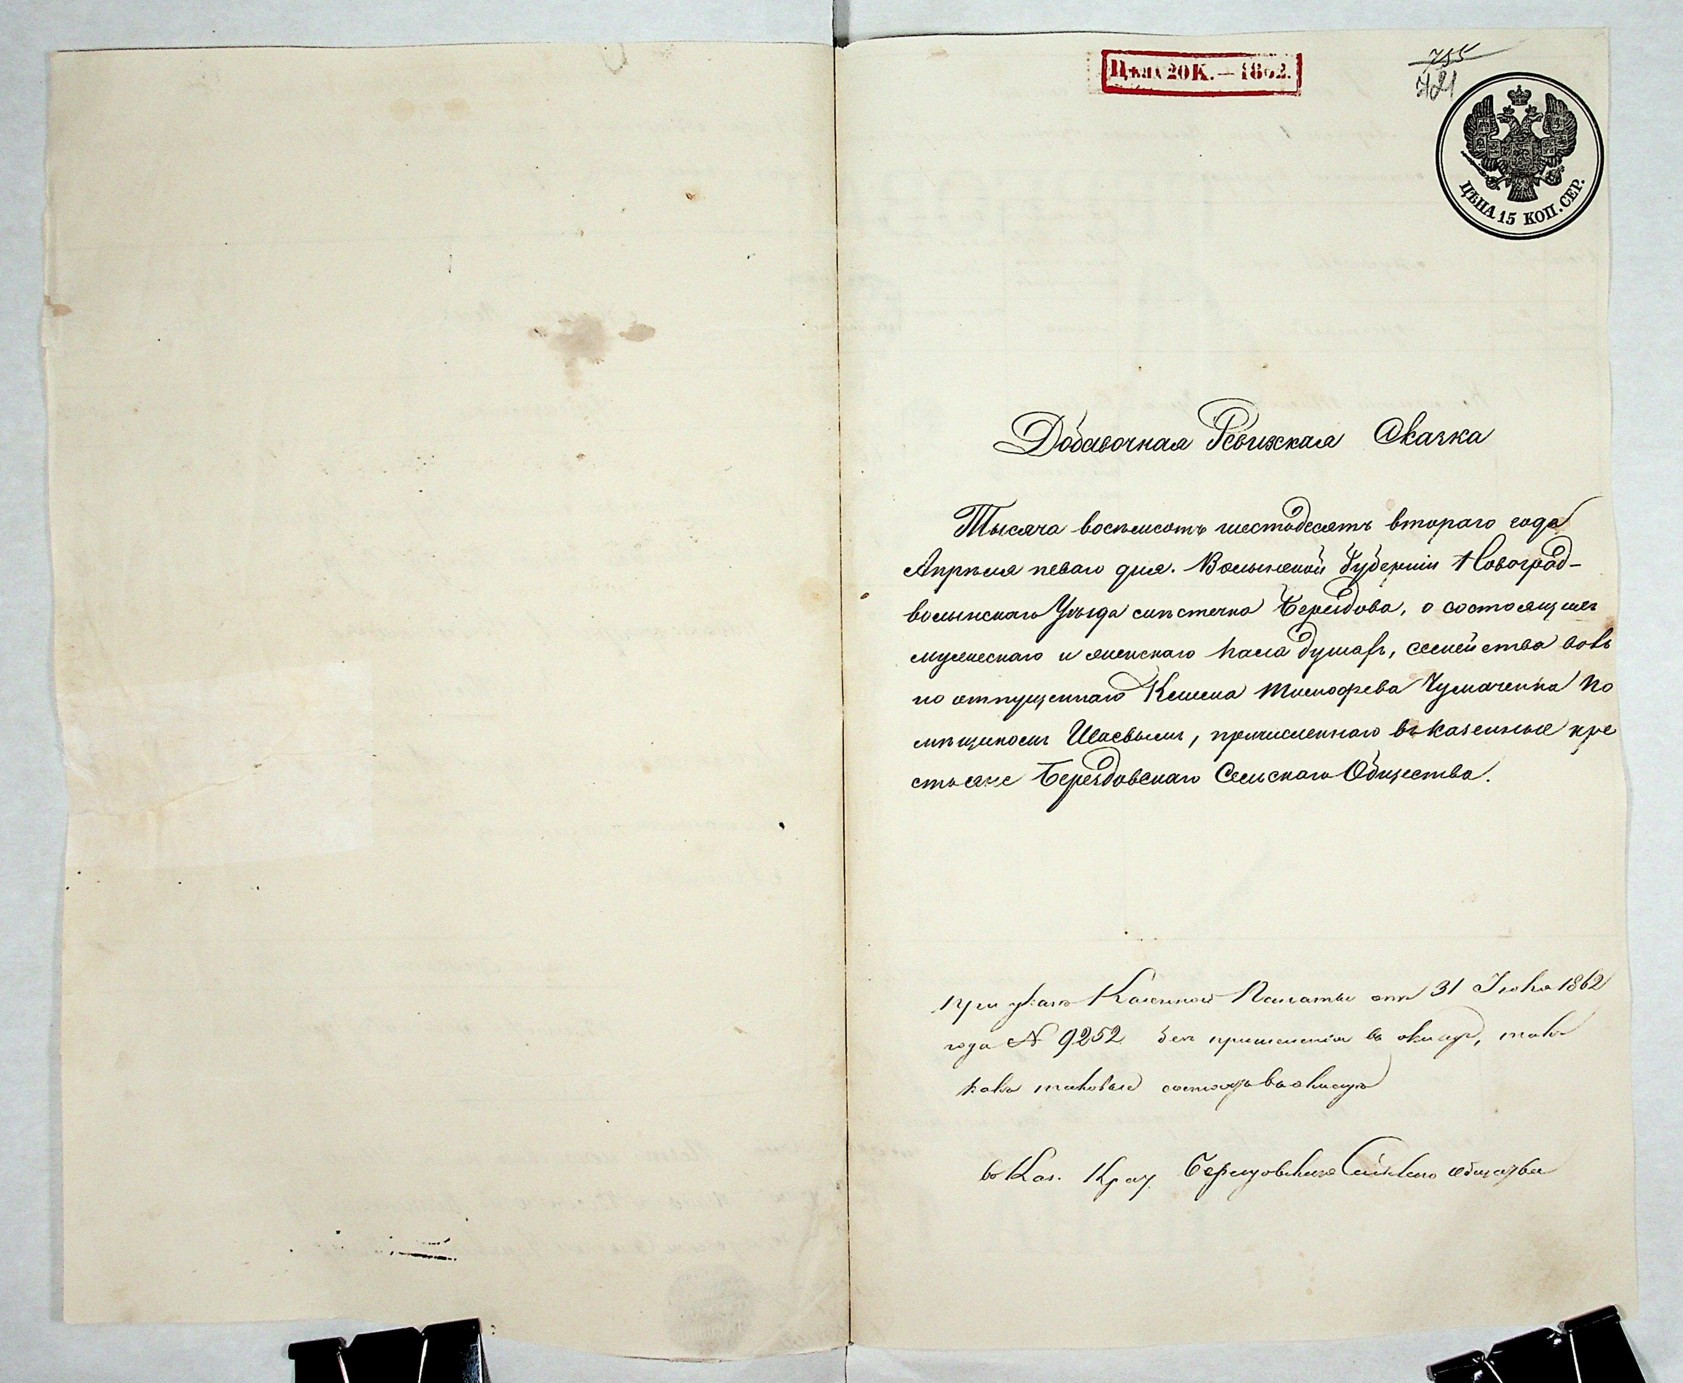 Цѣна 20 К. — 1862.
755
721
ЦѢНА 15 КОП. СЕР.
Добавочная Ревижская Сказка
Тысяча восемьсотъ шестьдесятъ втораго года
Апрѣля перваго дня. Волынской Губерніи Новоград-
волынскаго Уѣзда мѣстечка Берездова, о состоящихъ
мужескаго и женскаго пола душах, семейства вовь
но отпущеннаго Тимофеева Чумаченка По
мѣщикомъ, причисленнаго въ казенные кре
стьяне Берездовскаго Сельскаго Общества.
При указѣ Казенной Палаты отъ 31 Іюля 1862
года № 9252 без причисленія въ окладъ, такъ
какъ таковые состоятъ въ окладѣ
въ Каз. Крес. Берездовскаго Сельскаго общества